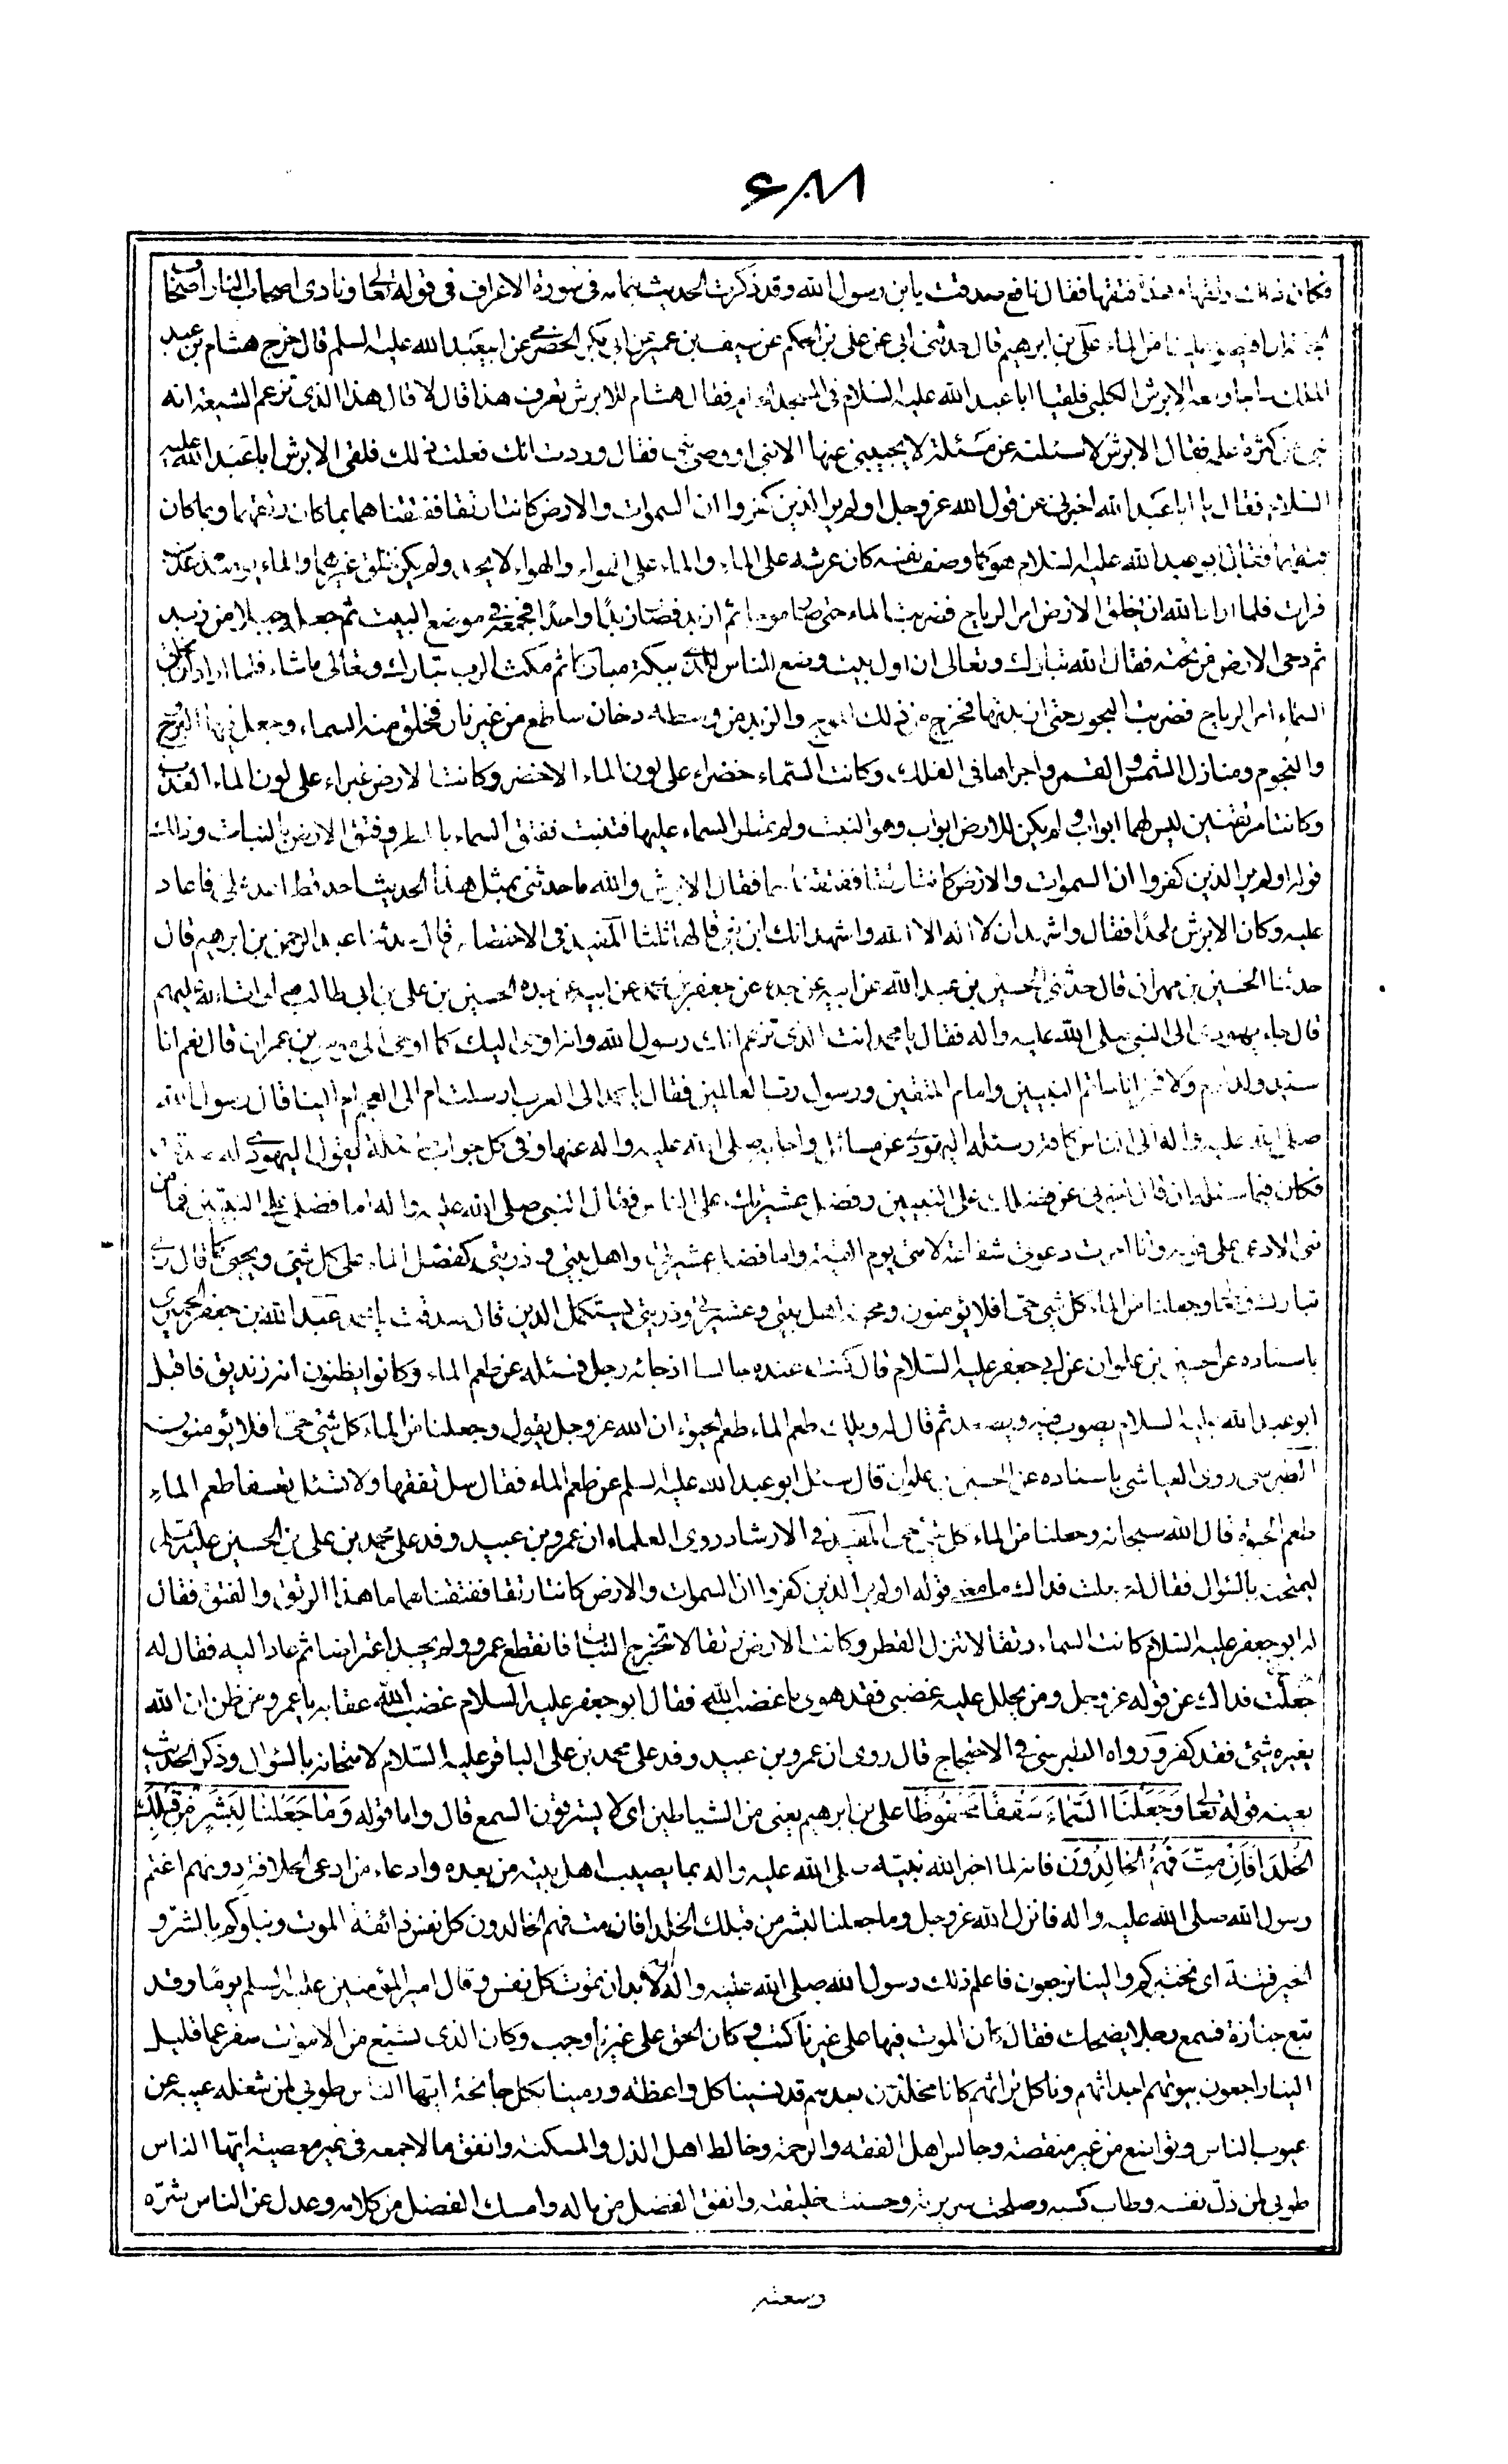 ۶۸۸
فكان ذلك رتقها وهذا فتقها فقال نافع صدقت يابن رسول الله وقد ذكرت الحديث بتمامه فى سورة الاعراف فى قوله تعا ونادى اصحاب النار اصحاب
الجنة ان افيضوا علينا من الماء على بن ابرهيم قال حدثنى ابى عن على بن الحكم عن سيف بن عميرة عن ابى بكر الحضرمى عن ابيعبد الله عليه السلم قال خرج هشام بن عبد
الملك حاجا ومعه الابرش الكلبى فلقيا ابا عبد الله عليه السلام فى المسجد الحرام فقال هشام للابرش تعرف هذا قال لا قال هذا الذى تزعم الشيعة انه
نبى من كثرة علمه فقال الابرش لاسئلنه عن مسئلة لا يجيبنى عنها الا نبى او وصى نبى فقال وددت انك فعلت ذلك فلقى الابرش ابا عبد الله عليه
السلام فقال يا ابا عبد الله اخبرنى عن قول الله عز وجل اولم ير الذين كفروا ان السموات والارض كانتا رتقا ففتقناهما بما كان رتقهما وبما كان
فتقهما فقال ابو عبد الله عليه السلام هو كما وصف نفسه كان عرشه على الماء والماء على الهواء والهواء لا يحد ولم يكن خلق غيرهما والماء يومئذ عذب
فرات فلما اراد الله ان يخلق الارض امر الرياح فضربت الماء حتى صار موجا ثم ازبد فصار زبدا واحدا فجمعه فى موضع البيت ثم جعله جبلا من زبد
ثم دحى الارض من تحته فقال الله تبارك وتعالى ان اول بيت وضع للناس للذى ببكة مباركا ثم مكث الرب تبارك وتعالى ما شاء فلما اراد ان يخلق
السماء امر الرياح فضربت البحور حتى ازبدتها فخرج من ذلك الموج والزبد من وسطه دخان ساطع من غير نار فخلق منه السماء وجعل فيها البروج
والنجوم ومنازل الشمس والقمر واجراها فى الفلك وكانت السماء خضراء على لون الماء الاخضر وكانت الارض غبراء على لون الماء العذب
وكانتا مرتقتين ليس لهما ابواب ولم يكن للارض ابواب وهو النبت ولم تمطر السماء عليها فتنبت ففتق السماء بالمطر وفتق الارض بالنبات وذلك
قوله اولم ير الذين كفروا ان السموات والارض كانتا رتقا ففتقناهما فقال الابرش والله ما حدثنى بمثل هذا الحديث احد قط اعد على فاعاد
عليه وكان الابرش ملحدا فقال واشهد ان لا اله الا الله واشهد انك ابن نبى قالها ثلثا المفيد فى الاختصاص قال حدثنا عبد الرحمن بن ابرهيم قال
حدثنا الحسين بن مهران قال حدثنى الحسين بن عبد الله عن ابيه عن جده عن جعفر بن محمد عن ابيه عن جده الحسين بن على بن ابى طالب صلوات الله عليهم
قال جاء يهودى الى النبى صلى الله عليه واله فقال يا محمد انت الذى تزعم انك رسول الله وانه اوحى اليك كما اوحى الى موسى بن عمران قال نعم انا
سيد ولد ادم ولا فخر انا خاتم النبيين وامام المتقين ورسول رب العالمين فقال يا محمد الى العرب ارسلت ام الى العجم ام الينا قال رسول الله
صلى الله عليه واله الى الناس كافة وسئله اليهودى عن مسائل واجابه صلى الله عليه واله عنها وفى كل جواب مسئلة يقول اليهودى له صدقت
فكان فيما سئله ان قال اخبرنى عن فضلك على النبيين وفضل عشيرتك على الناس فقال النبى صلى الله عليه واله اما فضلى على النبيين فما من
نبى الا دعى على قومه وانا اخرت دعوتى شفاعة لامتى يوم القيمة واما فضل عشيرتى واهل بيتى وذريتى كفضل الماء على كل شئ ويحيى كما قال ربى
تبارك وتعا وجعلنا من الماء كل شئ حى افلا يؤمنون ومحبة اهل بيتى وعشيرتى وذريتى يستكمل الدين قال صدقت يا محمد عبد الله بن جعفر الحميرى
باسناده عن حسين بن علوان عن ابى جعفر عليه السلام قال كنت عنده جالسا اذ جائه رجل فسئله عن طعم الماء وكانوا يظنون انه زنديق فاقبل
ابو عبد الله عليه السلام يصوب فيه ويصعد ثم قال له ويلك طعم الماء طعم الحيوة ان الله عز وجل يقول وجعلنا من الماء كل شئ حى افلا يؤمنون
الطبرسى روى العياشى باسناده عن الحسين بن علوان قال سئل ابو عبد الله عليه السلم عن طعم الماء فقال سل تفقها ولا تسئل تعسفا طعم الماء
طعم الحيوة قال الله سبحانه وجعلنا من الماء كل شئ حى المفيد فى الارشاد روى العلماء ان عمرو بن عبيد وفد على محمد بن على بن الحسين عليه السلم
ليمتحنه بالسؤال فقال له جعلت فداك ما معنى قوله اولم ير الذين كفروا ان السموات والارض كانتا رتقا ففتقناهما ما هذا الرتق والفتق فقال
له ابو جعفر عليه السلام كانت السماء رتقا لا تنزل القطر وكانت الارض رتقا لا تخرج النبات فانقطع عمرو ولم يجد اعتراضا ثم عاد اليه فقال له
جعلت فداك عن قوله عز وجل ومن يحلل عليه غضبى فقد هوى ما غضب الله فقال ابو جعفر عليه السلام غضب الله عقابه يا عمرو من ظن ان الله
يغيره شئ فقد كفر ورواه الطبرسى فى الاحتجاج قال روى ان عمرو بن عبيد وفد على محمد بن على الباقر عليه السلام لامتحانه بالسؤال وذكر الحديث
بعينه قوله تعا وَجَعَلْنَا السَّمَاءَ سَقْفًا مَحْفُوظًا على بن ابرهيم يعنى من الشياطين اى لا يسترقون السمع قال واما قوله وَمَا جَعَلْنَا لِبَشَرٍ مِنْ قَبْلِكَ
الْخُلْدَ اَفَاِنْ مِتَّ فَهُمُ الْخَالِدُونَ فانه لما اخبر الله نبيه صلى الله عليه واله بما يصيب اهل بيته من بعده وادعاء من ادعى الخلافة دونهم اغتم
رسول الله صلى الله عليه واله فانزل الله عز وجل وما جعلنا لبشر من قبلك الخلد افان مت فهم الخالدون كل نفس ذائقة الموت ونبلوكم بالشر و
الخير فتنة اى نختبركم والينا ترجعون فاعلم ذلك رسول الله صلى الله عليه واله انه لا بد ان تموت كل نفس وقال امير المؤمنين عليه السلم يوما وقد
تبع جنازة فسمع رجلا يضحك فقال كان الموت فيها على غيرنا كتب وكان الحق على غيرنا وجب وكان الذى نشيع من الاموات سفر عما قليل
الينا راجعون بيوتهم اجداثهم وناكل تراثهم كانا مخلدون بعدهم قد نسينا كل واعظة ورمينا بكل جائحة ايها الناس طوبى لمن شغله عيبه عن
عيوب الناس وتواضع من غير منقصة وجالس اهل الفقه والرحمة وخالط اهل الذل والمسكنة وانفق مالا جمعه فى غير معصية ايها الناس
طوبى لمن ذل نفسه وطاب كسبه وصلحت سريرته وحسنت خليقته وانفق الفضل من ماله وامسك الفضل من كلامه وعدل عن الناس شره
وسعته